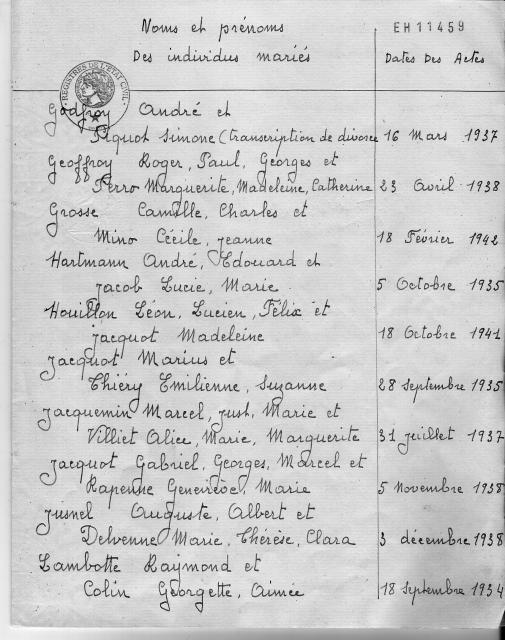 Noms et prénoms
EH11459
Des individus mariés
Dates Des Actes
REGISTRES DE L'ETAT CIVIL
Godfroy André et
Piquot Simone (transcription de divorce 16 Mars 1937
Geoffroy Roger, Paul, Georges et
Ferro Marguerite, Madeleine, Catherine 23 Avril 1938
Grosse Camille, Charles et
Mino Cécile, Jeanne 18 Février 1942
Hartmann André, Edouard et
Jacob Lucie, Marie 5 Octobre 1935
Houillon Léon, Lucien, Félix et
Jacquot Madeleine 18 Octobre 1941
Jacquot Marius et
Thiéry Emilienne, Suzanne 28 Septembre 1935
Jacquemin Marcel, Just, Marie et
Villiet Alice, Marie, Marguerite 31 Juillet 1937
Jacquot Gabriel, Georges, Marcel et
Rapenne Geneviève, Marie 5 Novembre 1938
Jusnel Auguste, Albert et
Delvenne Marie, Thérèse, Clara 3 décembre 1938
Lambotte Raymond et
Colin Georgette, Aimée 18 Septembre 1934